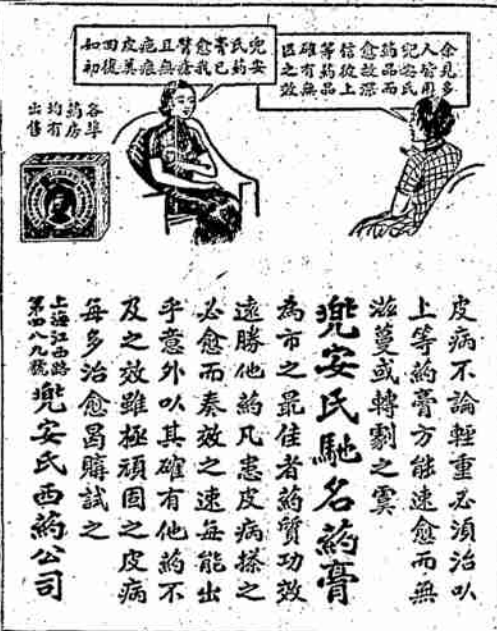 余見多
人皆用
兜安氏
葯品而
愈故深
信彼上
等葯品
確有無
匹之效
兜安
氏葯
膏已
愈我
臂瘡
且無
疤痕
皮美
回復
如初
各埠
葯房
均有
出售
皮病不論輕重必須治以
上等葯膏方能速愈而無
滋蔓或轉劇之虞
兜安氏馳名葯膏
為市之最佳者葯質功效
遠勝他葯凡患皮病搽之
必愈而奏效之速每能出
乎意外以其確有他葯不
及之效雖極頑固之皮病
每多治愈曷購試之
上海江西路
第四八九號
兜安氏西葯公司